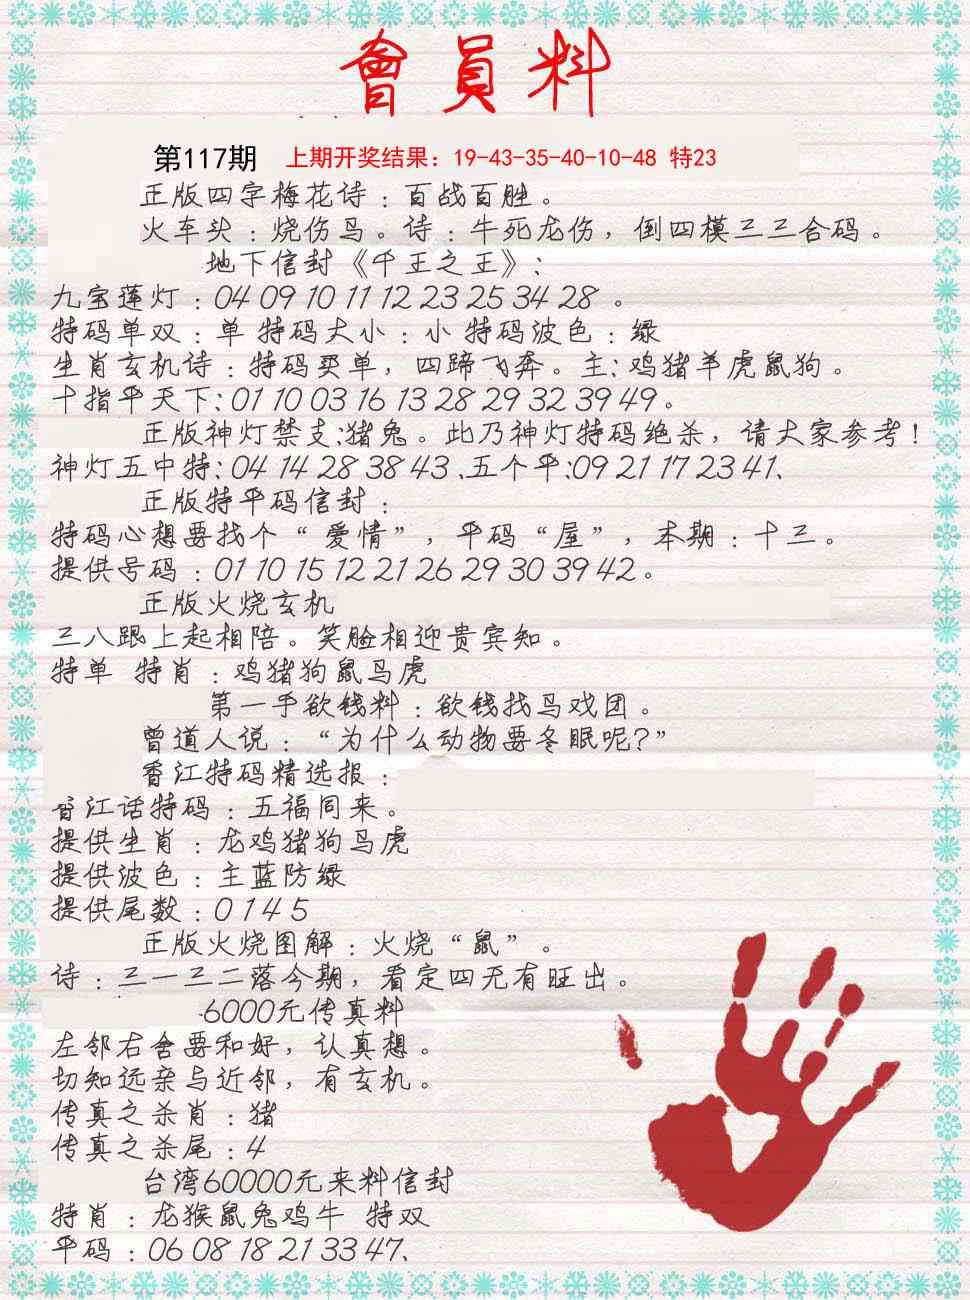 會員料
第117期 上期开奖结果：19-43-35-40-10-48 特23
正版四字梅花诗：百战百胜。
火车头：烧伤鸟。诗：牛死龙伤，倒四模三三合码。
地下信封《千王之王》：
九宝莲灯：04 09 10 11 12 23 25 34 28 。
特码单双：单 特码大小：小 特码波色：绿
生肖玄机诗：特码买单，四蹄飞奔。主：鸡猪羊虎鼠狗。
十指平天下：01 10 03 16 13 28 29 32 39 49。
正版神灯禁支：猪兔。此乃神灯特码绝杀，请大家参考！
神灯五中特：04 14 28 38 43 、五个平：09 21 17 23 41、
正版特平码信封：
特码心想要找个“爱情”，平码“屋”，本期：十三。
提供号码：01 10 15 12 21 26 29 30 39 42。
正版火烧玄机
三八跟上起相陪。笑脸相迎贵宾知。
特单 特肖：鸡猪狗鼠马虎
第一手欲钱料：欲钱找马戏团。
曾道人说：“为什么动物要冬眠呢？”
香江特码精选报：
香江话特码：五福同来。
提供生肖：龙鸡猪狗马虎
提供波色：主蓝防绿
提供尾数：0 1 4 5
正版火烧图解：火烧“鼠”。
诗：三一三二落今期，看定四无有旺出。
6000元传真料
左邻右舍要和好，认真想。
切知远亲与近邻，有玄机。
传真之杀肖：猪
传真之杀尾：4
台湾60000元来料信封
特肖：龙猴鼠兔鸡牛 特双
平码：06 08 18 21 33 47、